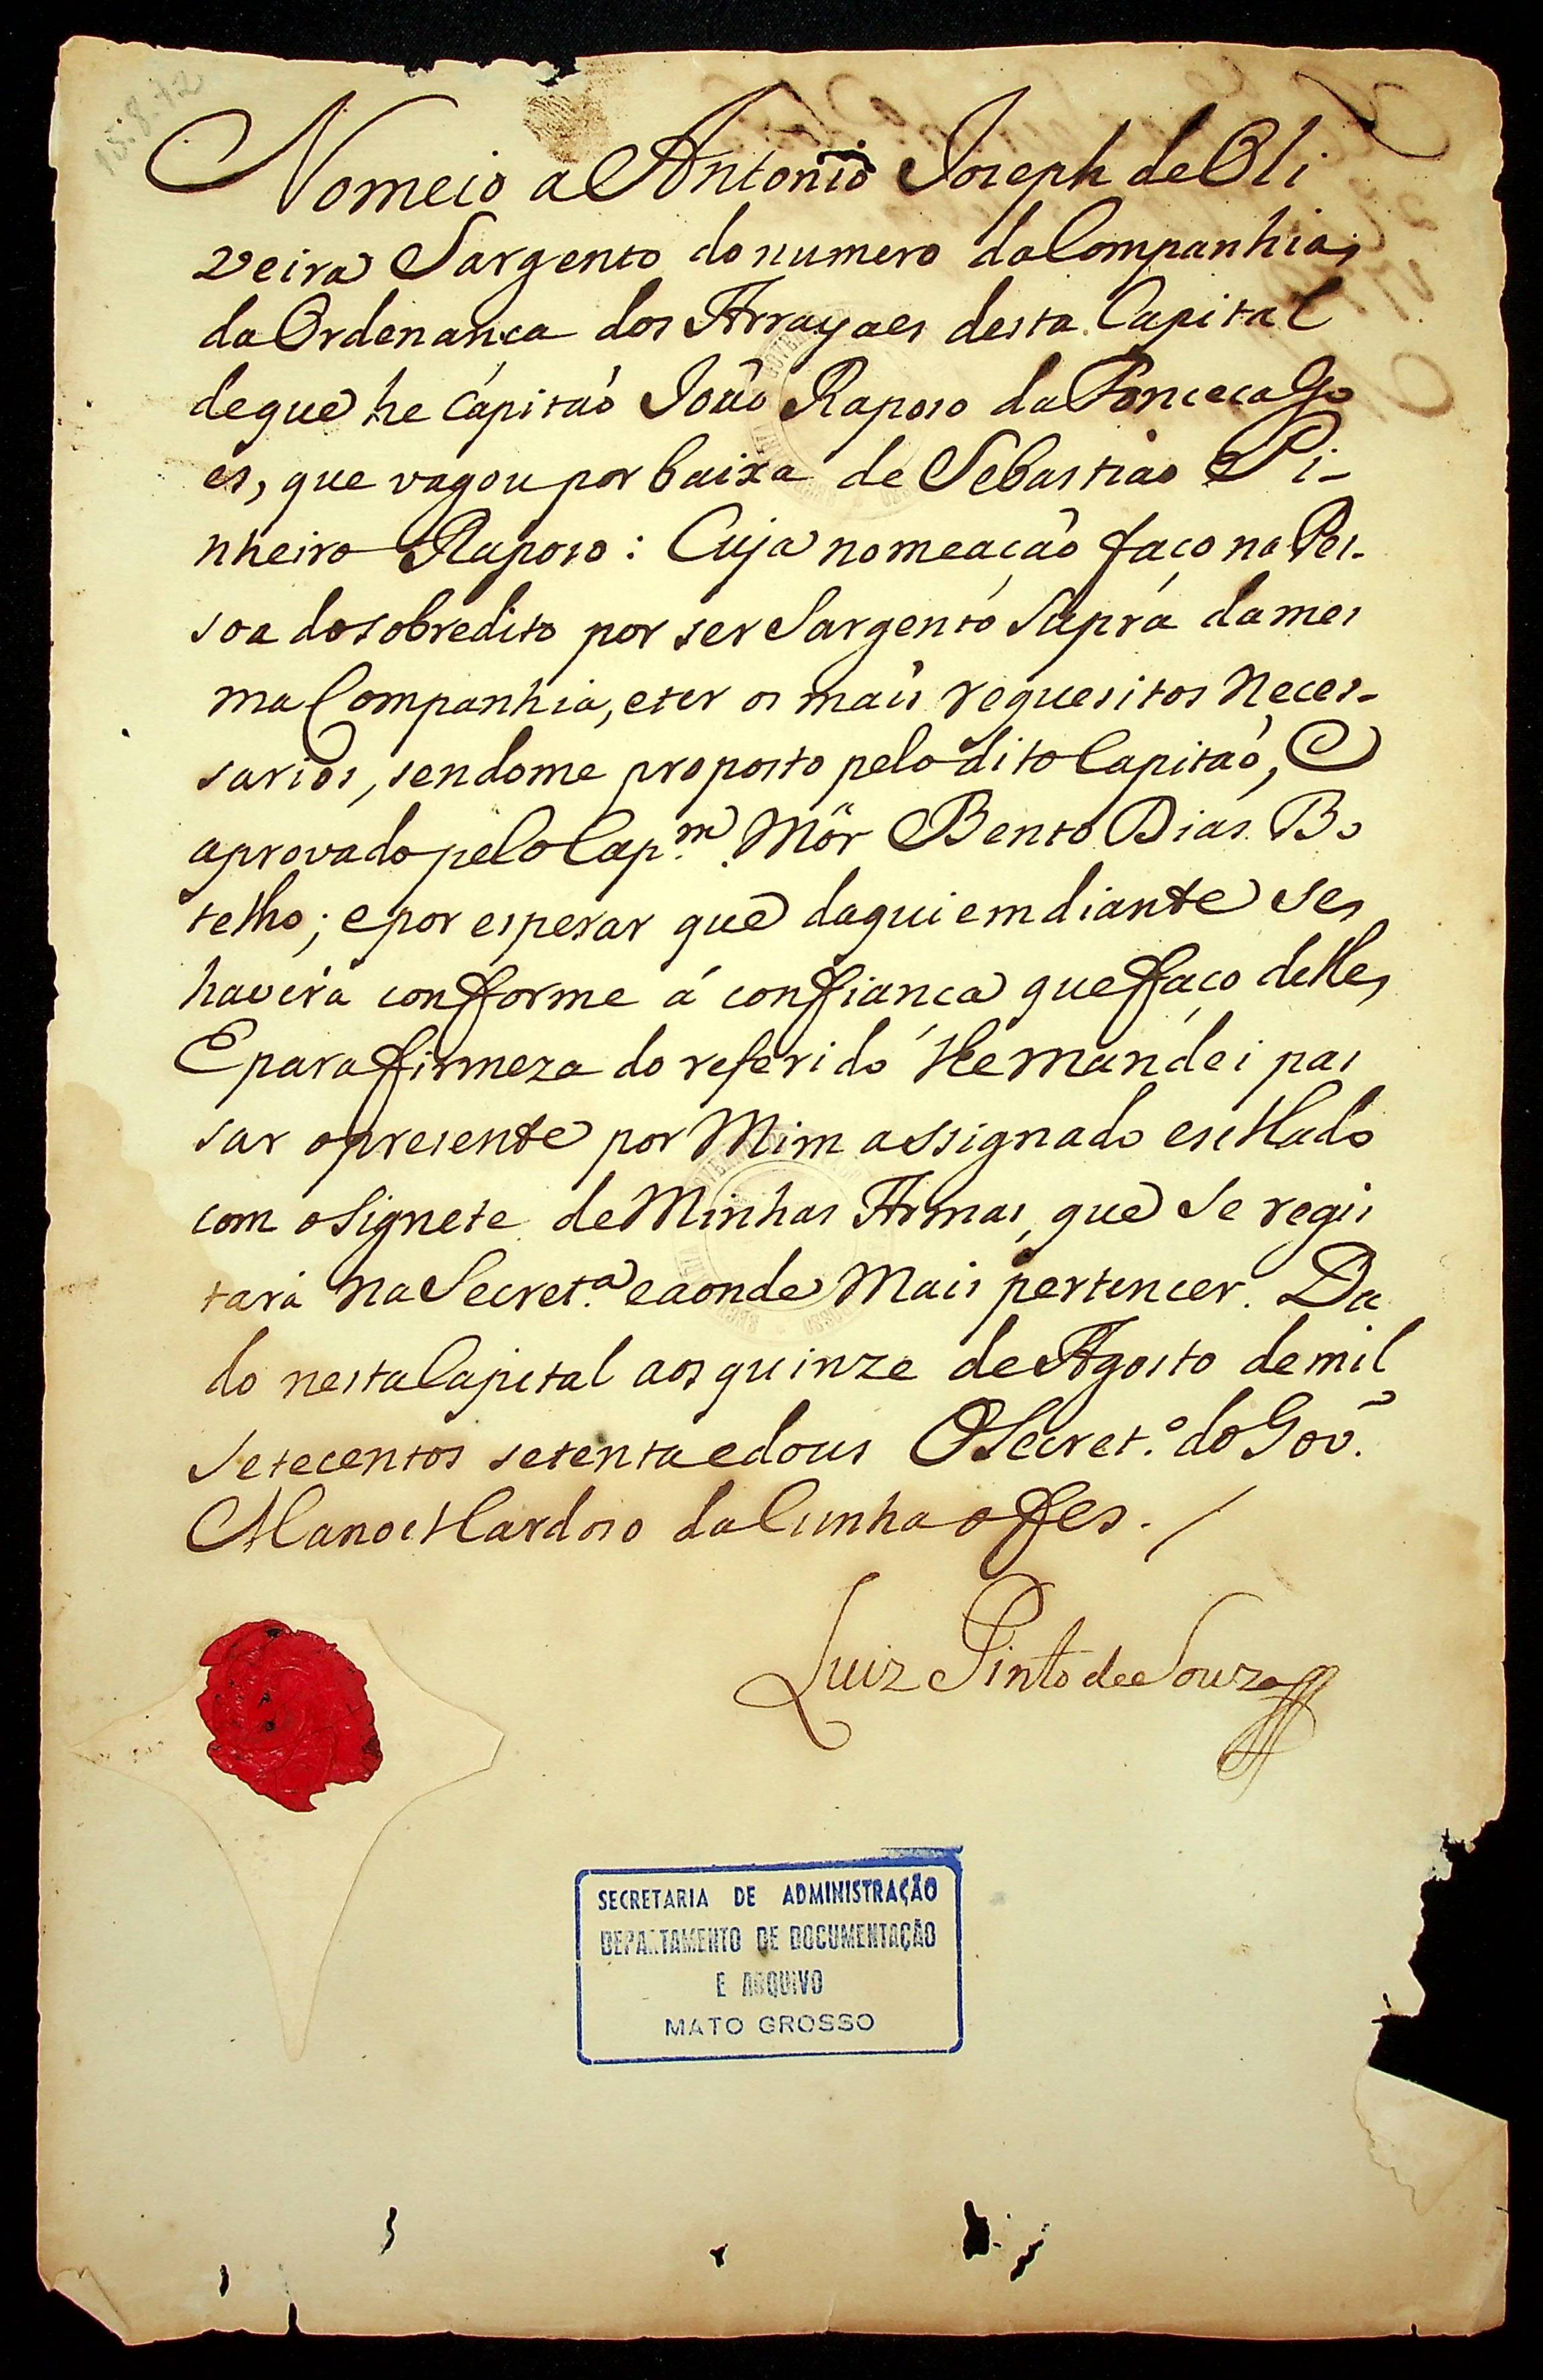 15.8.72
Nomeio a Antonio Joseph de Oli
veira Sargento do numero da Companhia,
da Ordenança dos Arrayaes desta Capital
de que he Capitaõ Joaõ Raposo da Fonceca Go
es, que vagou por baixa de Sebastiaõ Pi-
nheiro Raposo: Cuja nomeaçaõ faço na Pes-
soa do sobredito por ser Sargento Supra da mes
ma Companhia, e ter os mais requesitos Neces-
sarios, sendome proposto pelo dito Capitaõ, E
aprovado pelo Cap.m Mór Bento Dias Bo
telho; e por esperar que daqui em diante se
haverá comfforme á conffiança que ffaço delle,
E para ffirmeza do referido lhe mandei pas
sar o presente por Mim assignado e sellado
com o Signete de Minhas Armas, que se regis
tará na Secret.a e aonde Mais pertencer. Da
do nesta Capital aos quinze de Agosto de mil
Setecentos setenta e dous O Secret.o do Gov.
Manoel Cardoso da Cunha o ffes. /
Luiz Pinto de Souza
SECRETARIA DE ADMINISTRAÇÃO
DEPARTAMENTO DE DOCUMENTAÇÃO
E ARQUIVO
MATO GROSSO